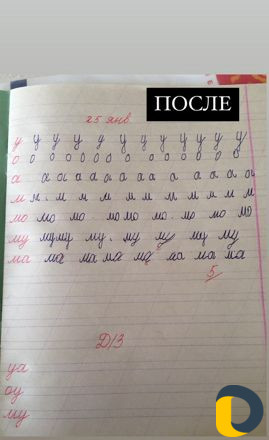 ПОСЛЕ
25 янв.
у у у у у у у у у у у у
о о о о о о о о о о о о о
а а а а а а а а а а а а а
м м м м м м м м м м м м
мо мо мо мо мо мо мо мо мо
му му му му му му му му
ма ма ма ма ма ма ма ма
5
Д/З
уа
оу
му